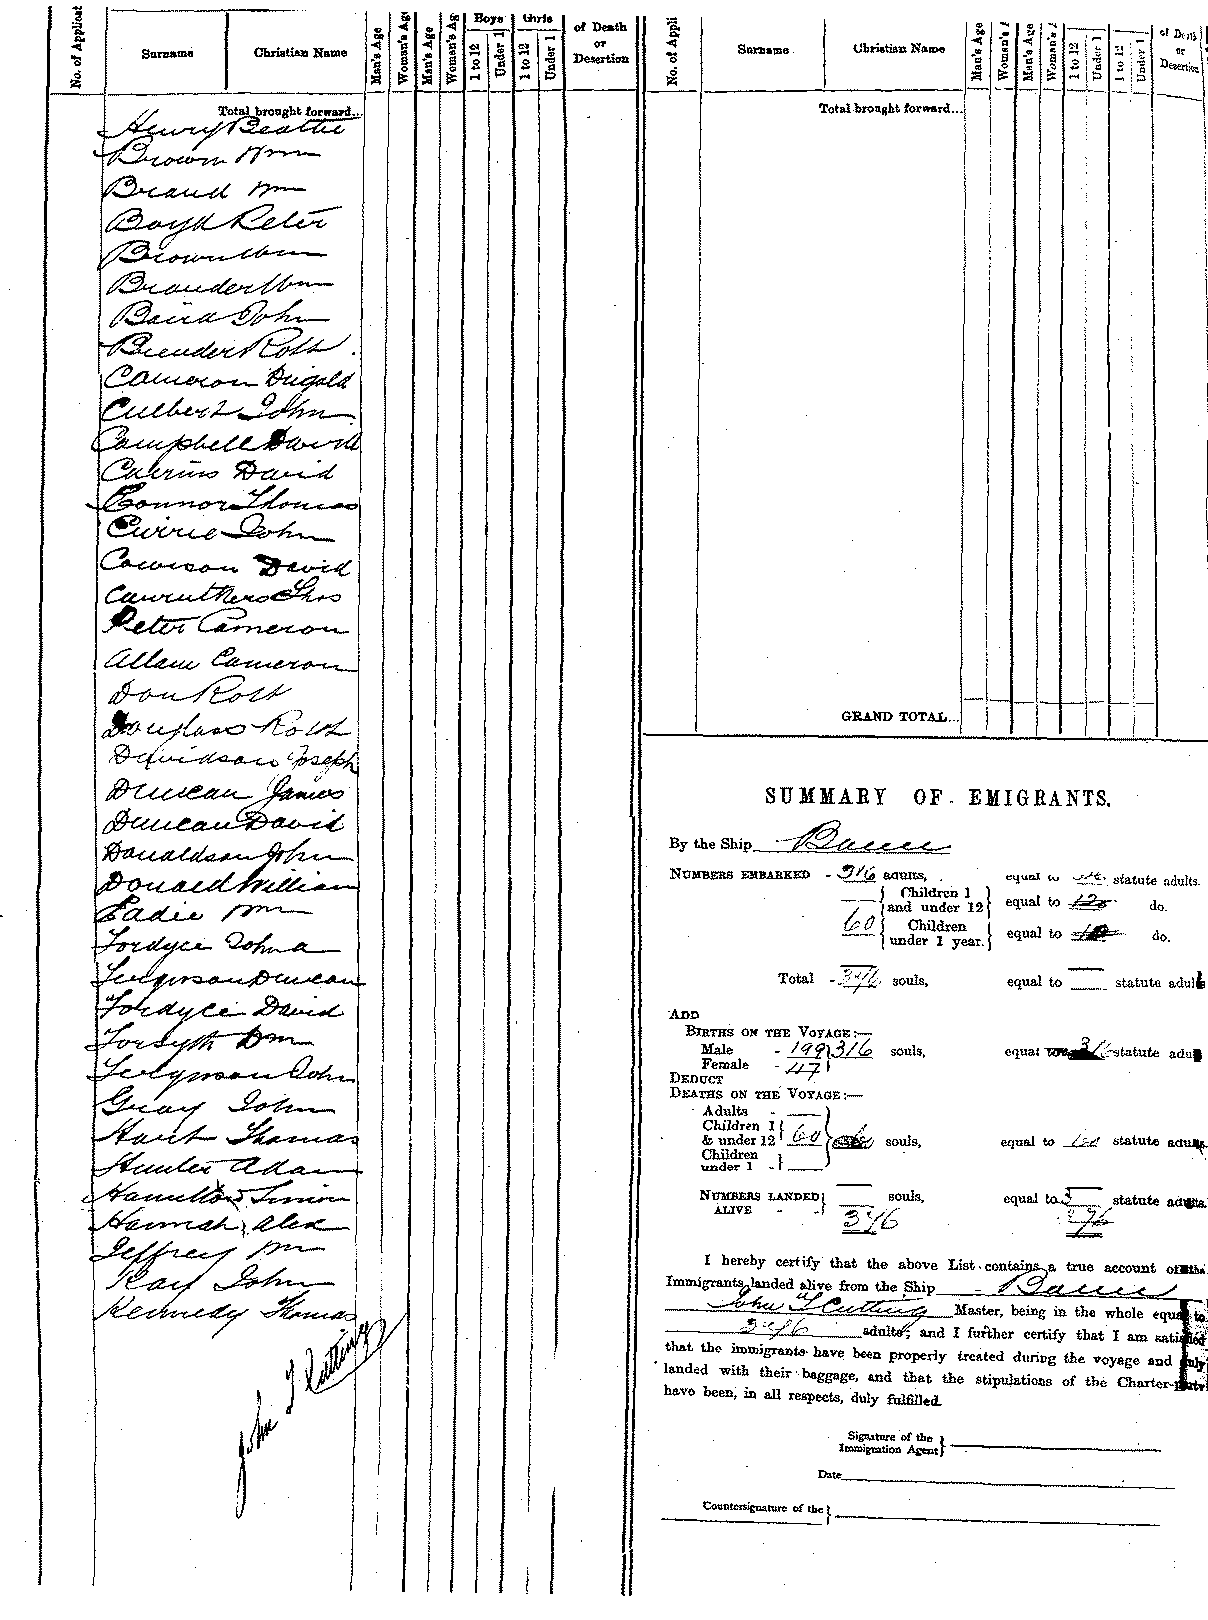 No. of Applicat
Surname
Christian Name
Man's Age
Woman's Age
Man's Age
Woman's Ag
Boys
1 to 12
Under 1
Girls
1 to 12
Under 1
of Death
or
Desertion
Total brought forward...
Henry Beattie
Brown Wm
Brand Wm
Boyd Peter
Brown Wm
Brander Wm
Baird John
Robt
Cameron Dugald
Culbert John
Campbell David
Cairns David
Connor Thomas
Currie John
Cowison David
Carruthers Thos
Peter Cameron
Allan Cameron
Don Robt
Douglass Robt
Davidson Joseph
Duncan James
Duncan David
Donaldson John
Donald William
Eadie Wm
Fordyce John a
Ferguson Duncan
Fordyce David
Forsyth Wm
Ferguson John
Gray John
Hart Thomas
Hunter Adam
Hamilton Simon
Hannah Alex
Jeffrey Wm
Kay John
Kennedy Thomas
John T Cutting
No. of Appli
Surname
Christian Name
Man's Age
Woman's A
Man's Age
Woman's A
1 to 12
Under 1
1 to 12
Under 1
of Death
or
Desertion
Total brought forward...
GRAND TOTAL...
SUMMARY OF EMIGRANTS.
By the Ship
NUMBERS EMBARKED - 316 adults, equal to 316 statute adults.
Children 1
and under 12 equal to 120 do.
60 Children
under 1 year. equal to do.
Total - 346 souls, equal to statute adults
ADD
BIRTHS ON THE VOYAGE:—
Male - 199 316 souls, equal to 316 statute adu
Female - 47
DEDUCT
DEATHS ON THE VOYAGE:—
Adults -
Children 1
& under 12 60 souls, equal to statute adults
Children
under 1 -
NUMBERS LANDED souls, equal to 3 statute adults.
ALIVE - - 346
I hereby certify that the above List contains a true account of the
Immigrants landed alive from the Ship
John T Cutting Master, being in the whole equal to
346 adults; and I further certify that I am satisfied
that the immigrants have been properly treated during the voyage and duly
landed with their baggage, and that the stipulations of the Charter-party
have been, in all respects, duly fulfilled.
Signature of the
Immigration Agent
Date
Countersignature of the